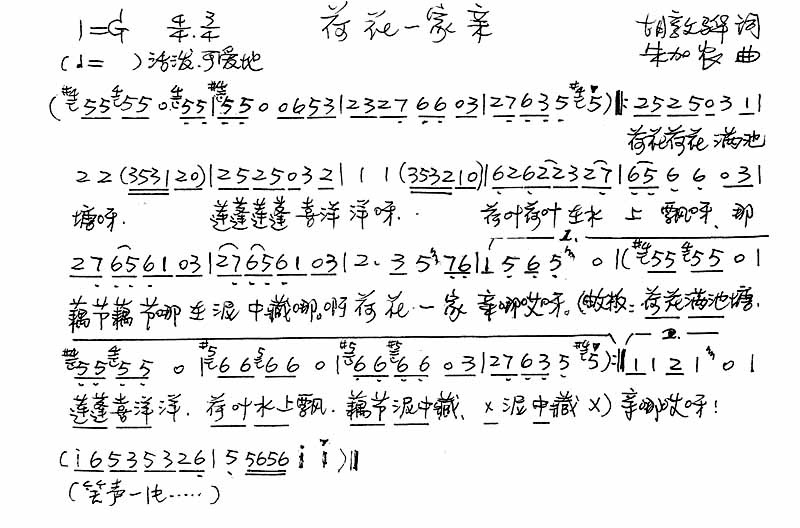 1=G 4/4 3/4 荷花一家亲 胡敦骅词
(♩= )活泼.可爱地 朱加农曲
(#4 55 #4 55 0 #4 55|#4 55 0 0653|2327 66 03|27635 #4 5)‖: 2525031|
荷花荷花 满池
22(353120)|2525032|11(353210)|6262232 7|65 6 6 031|
塘呀. 莲蓬莲蓬 喜洋洋呀.. 荷叶荷叶 在水上飘呀、那
27656103|27656103|2. 35 76|1 565 0|(#4 55 #4 55 01
藕节藕节哪在泥中藏哪。啊荷花一家亲哪哎呀。(敞板:荷花满池塘.
#4 55 #4 55 0|#5 66 5 66 0|#5 66 #5 66 03|27635 #4 5):‖1121 01
莲蓬喜洋洋. 荷叶水上飘. 藕节泥中藏、×泥中藏×)亲哪哎呀!
(i6535326|5 5656 i i)‖
(笑声一片……)